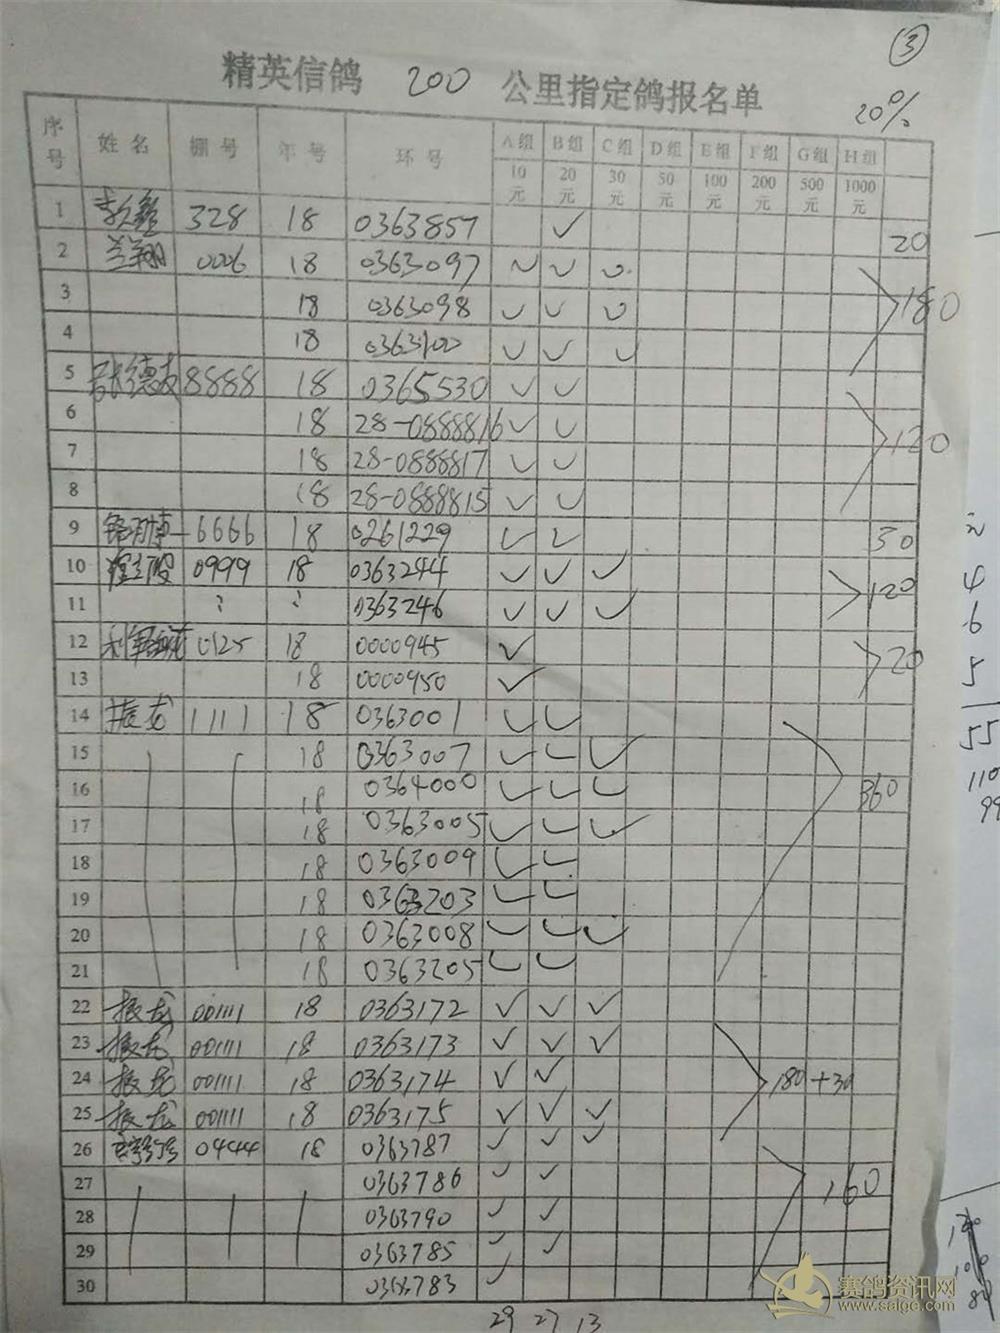 ③
精英信鸽 200 公里指定鸽报名单
20%
序号 姓名 棚号 年号 环号 A组 B组 C组 D组 E组 F组 G组 H组
10元 20元 30元 50元 100元 200元 500元 1000元
1 328 18 0363857 ✓ 20
2 兰翔 0006 18 0363097 ✓ ✓ ✓
3 18 0363098 ✓ ✓ ✓ 180
4 18 0363100 ✓ ✓ ✓
5 张德友 8888 18 0365530 ✓ ✓
6 18 28-0888816 ✓ ✓ 120
7 18 28-0888817 ✓ ✓
8 18 28-0888815 ✓ ✓
9 6666 18 0261229 ✓ ✓ 30
10 0999 18 0363244 ✓ ✓ ✓ 120
11 0363246 ✓ ✓ ✓
12 0125 18 0000945 ✓ 20
13 18 0000950 ✓
14 振龙 1111 18 0363001 ✓ ✓
15 18 0363007 ✓ ✓ ✓
16 18 0364000 ✓ ✓ ✓ 360
17 18 0363005 ✓ ✓ ✓
18 18 0363009 ✓ ✓
19 18 0363203 ✓ ✓
20 18 0363008 ✓ ✓ ✓
21 18 0363205 ✓ ✓
22 振龙 001111 18 0363172 ✓ ✓ ✓
23 振龙 001111 18 0363173 ✓ ✓ ✓
24 振龙 001111 18 0363174 ✓ ✓ 180+30
25 振龙 001111 18 0363175 ✓ ✓ ✓
26 0444 18 0363787 ✓ ✓ ✓
27 0363786 ✓ ✓ 160
28 0363790 ✓ ✓
29 0363785 ✓ ✓
30 0363783 ✓
29 27 13
4
6
5
55
110
99
赛鸽资讯网
www.saige.com